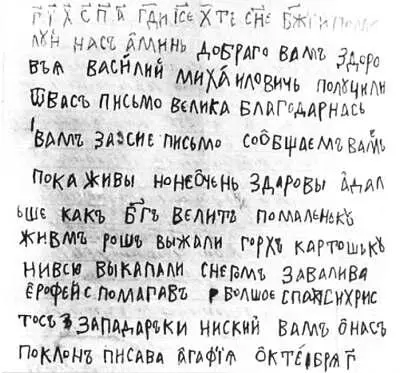 Г҃І Х҃С П҃А Г҃ДИ ІСЕ Х҃ТЕ С҃НЕ Б҃ЖІИ ПОМИ
ЛУИ НАСЪ АМИНЬ ДОБРАГО ВАМЪ ЗДОРО
ВЪЯ ВАСИЛИЙ МИХАИЛОВИЧЬ ПОЛУЧИЛИ
ѾВАСЪ ПИСЬМО ВЕЛИКА БЛАГОДАРНАСЬ
ВАМЪ ЗАСИЕ ПИСЬМО СООБЩАЕМЪ ВАМЪ
ПОКА ЖИВЫ НОНЕОЧЕНЬ ЗДАРОВЫ АДАЛ
ЬШЕ КАКЪ Б҃ГЪ ВЕЛИТЬ ПОМАЛЕНЬКУ
ЖИВМЪ РОШЬ ВЫЖАЛИ ГОРХЪ КАРТОШЬКУ
НИВСЮ ВЫКАПАЛИ СНЕГОМЪ ЗАВАЛИВА
ЕРОФЕЙ СПОМАГАВЪ БОЛШОЕ СПАСИХРИС
ТОСЪ ЗАПАДАРЪКИ НИСКИЙ ВАМЪ ОНАСЪ
ПОКЛОНЪ ПИСАВА АГАФІЯ ОКТЕБРЯ Г҃